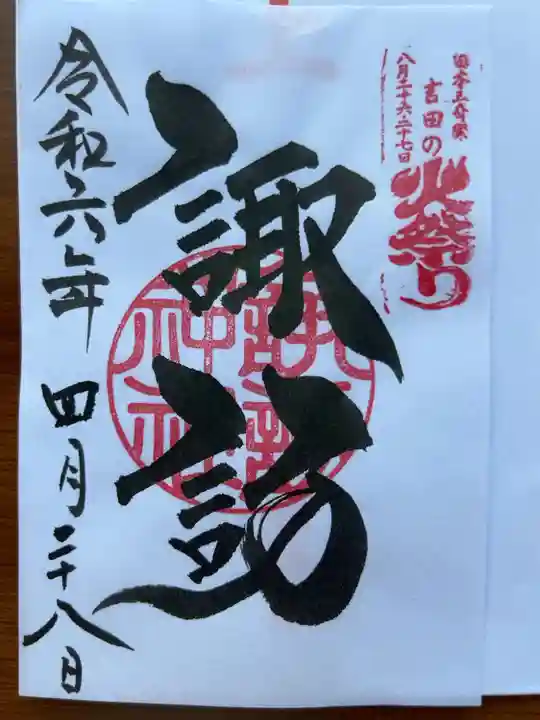 日本三奇祭
吉田の
火祭り
八月二十六・二十七日
諏訪
諏訪
神社
令和六年 四月二十八日